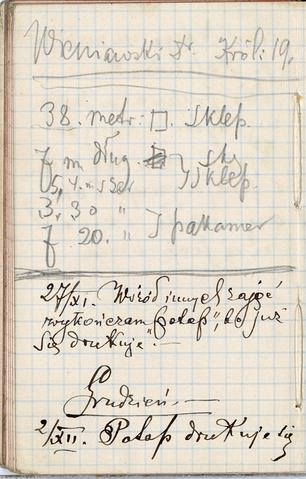 Wiśniowski Dr. Król. 19.
38. metr. □. sklep
7 m dług.
5, 4. m szer } sklep.
3. 30 "
7. 20. "
27/XI. Wśród innych zajęć
wykończam "Potop", bo już
się drukuje. —
Grudzień. —
2/XII. Potop drukuje się